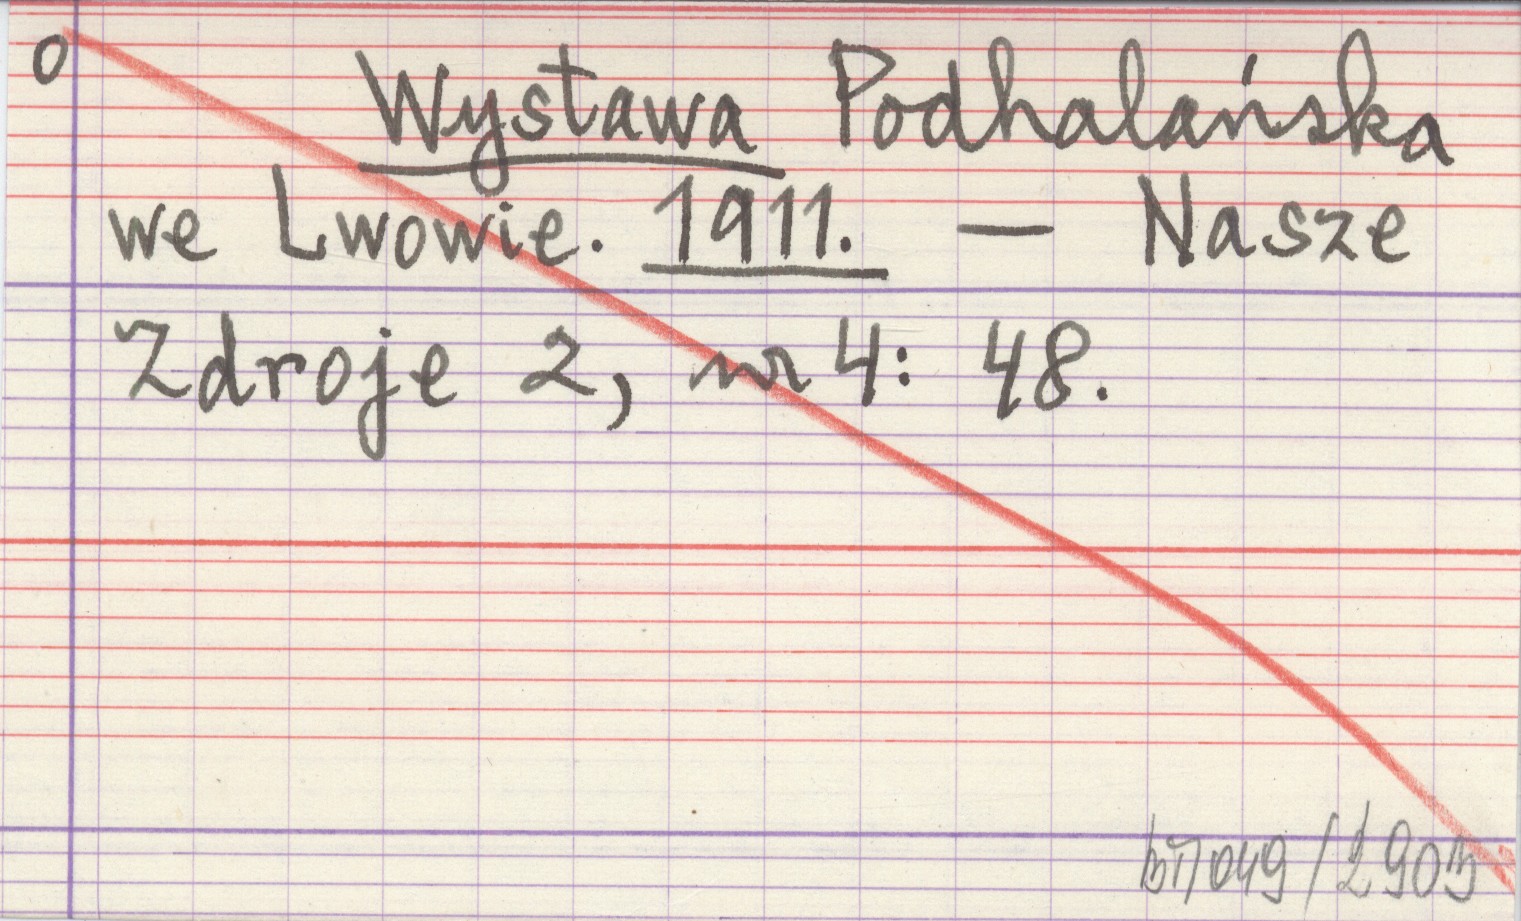 0
Wystawa Podhalańska
we Lwowie. 1911. — Nasze
Zdroje 2, nr 4: 48.